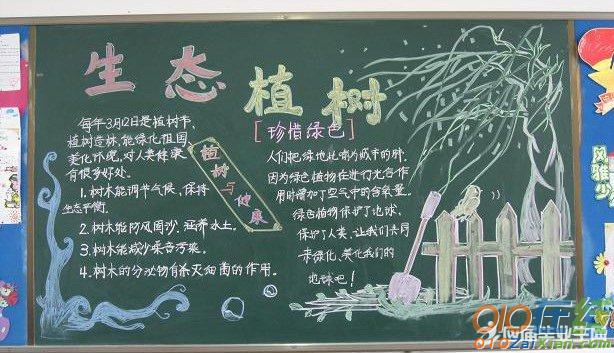 生态植树
每年3月12日是植树节,
植树造林,能绿化祖国
美化环境,对人类健康
有很多好处。
1. 树木能调节气候,保持
生态平衡.
2. 树木能防风固沙,涵养水土.
3. 树木能减少噪音污染.
4. 树木的分泌物有杀灭细菌的作用。
植树与健康
[珍惜绿色]
人们把绿地比喻为城市的肺,
因为绿色植物在进行光合作
用时增加了空气中的含氧量.
绿色植物保护了地球,
保护了人类,让我们共同
来绿化、美化我们的
地球吧!
风雅少
910在线
910zaixian.com